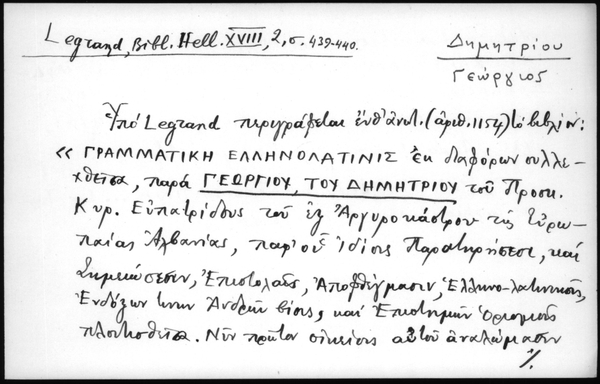 Legrand, Bibl. Hell. XVIII, 2, σ. 439-440.
Δημητρίου
Γεώργιος
Ὑπό Legrand περιγράφεται ἐνθ' ἀνωτ. (ἀριθ. 1154) τό βιβλίον:
« ΓΡΑΜΜΑΤΙΚΗ ΕΛΛΗΝΟΛΑΤΙΝΙΣ ἐκ διαφόρων συλλε-
χθεῖσα, παρά ΓΕΩΡΓΙΟΥ, ΤΟΥ ΔΗΜΗΤΡΙΟΥ τοῦ Προσκ.
Κυρ. Εὐπατρίδους τοῦ ἐξ Ἀργυροκάστρου τῆς Εὐρω-
παίας Ἀλβανίας, παρ' οὗ ἰδίαις Παρατηρήσεσι, καί
Σημειώσεσιν, Ἐπιστολαῖς, Ἀποφθέγμασιν, Ἑλληνο-λατινικοῖς,
Ἐνδόξων τινῶν Ἀνδρῶν βίοις, καί Ἐπιστημῶν Ὁρισμοῖς
πλουτισθεῖσα. Νῦν πρῶτον οἰκείοις αὐτοῦ ἀναλώμασιν
./.